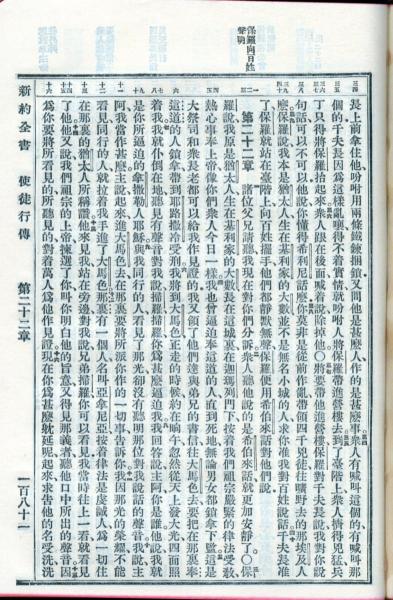 保羅向百姓
聲明
長上前拿住他吩咐用兩條鐵鏈捆鎖又問他是甚麼人作的是甚麼事衆人有喊叫這個的有喊叫那
個的千夫長因爲這樣亂嚷得不着實情就吩咐人將保羅帶進營樓去到了臺階上衆人擠得兇猛兵
丁只得將保羅抬起來衆人跟在後面喊着說除掉他〇將要帶他進營樓保羅對千夫長說我對你說
句話可以不可以他說你懂得希利尼話麼你莫非是從前作亂帶領四千兇徒往曠野去的那埃及人
麼保羅說我本是猶太人生在基利家的大數並不是無名小城的人求你准我對百姓說話千夫長准
了保羅就站在臺階上向百姓擺手他們都靜默無聲保羅便用希伯來話對他們說
第二十二章 諸位父兄請聽我現在對你們分訴衆人聽他說的是希伯來話就更加安靜了〇保
羅說我原是猶太人生在基利家的大數長在這城裏在迦瑪列門下按着我們祖宗嚴緊的律法受敎
熱心事奉上帝像你們衆人今日一樣我也曾逼迫奉這道的人直到死地無論男女都鎖拿下監這是
大祭司和衆長老都可以給我作見證的我又領了他們達與弟兄的書信往大馬色去要把在那裏奉
這道的人鎖拿帶到耶路撒冷受刑我將到大馬色正走的時候約在晌午忽然從天上發大光四面照
着我我就仆倒在地聽見有聲音對我說掃羅掃羅你爲甚麼逼迫我我回答說主阿你是誰他說我就
是你所逼迫的拿撒勒人耶穌與我同行的人看見了那光卻沒有聽明那位對我說話的聲音我說主
阿我當作甚麼主說起來進大馬色去在那裏要將所派你作的一切事告訴你我因那光的榮耀不能
看見同行的人就拉着我手進了大馬色那裏有一個人名叫亞拿尼亞按着律法是虔誠人爲一切住
在那裏的猶太人所稱讚他來見我站在旁邊對我說兄弟掃羅你可以看見我當時往上一看就看見
了他他又說我們祖宗的上帝揀選了你叫你明白他的旨意又得見那義者聽他口中所出的聲音因
爲你要將所看見的所聽見的對着萬人爲他作見證現在你爲甚麼躭延呢起來求告他的名受洗洗
新約全書 使徒行傳 第二十二章 一百八十一